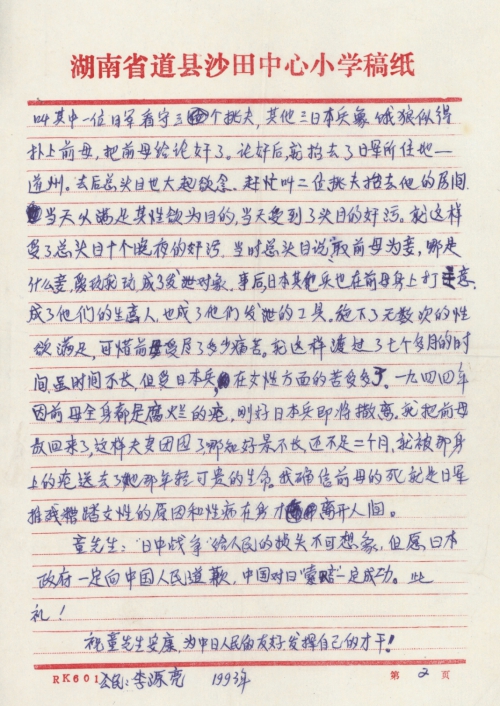 湖南省道县沙田中心小学稿纸
叫其中一位日军看守三个挑夫,其他三日本兵象饿狼似得
扑上前母,把前母给论奸了。论奸后,就抬去了日军所住地—
道州。去后总头目也大起欲念、赶忙叫二位挑夫抬去他的房间
当天以满足其性欲为目的,当天受到了头目的奸污。就这样
受了总头目十个晚夜的奸污,当时总头目说前母为妻,哪是
什么妻,成了发泄对象,事后,日本其他兵也在前母身上打主意,
成了他们的生意人,也成了他们发泄的工具。施下了无数次的性
欲满足,可惜前母受尽了多少痛苦。就这样渡过了七个多月的时
间,虽时间不长,但受日本兵在女性方面的苦多多了。一九四四年
因前母全身都是腐烂的疮,刚好日本兵即将撤离。我把前母
放回来了,这样夫妻团圆了哪知好景不长,还不足二个月,就被那身
上的疮送去了她那年轻可贵的生命。我确信前母的死就是日军
摧残糟蹋女性的原因和性病在身才离开人间。
童先生:"日中战争"给人民的损失不可想象,但愿日本
政府一定向中国人民道歉,中国对日"索赔"一定成功。此
礼!
祝童先生安康,为中日人民的友好发挥自己的才干!
RK601 公民:李源亮 1993年 第 2 页